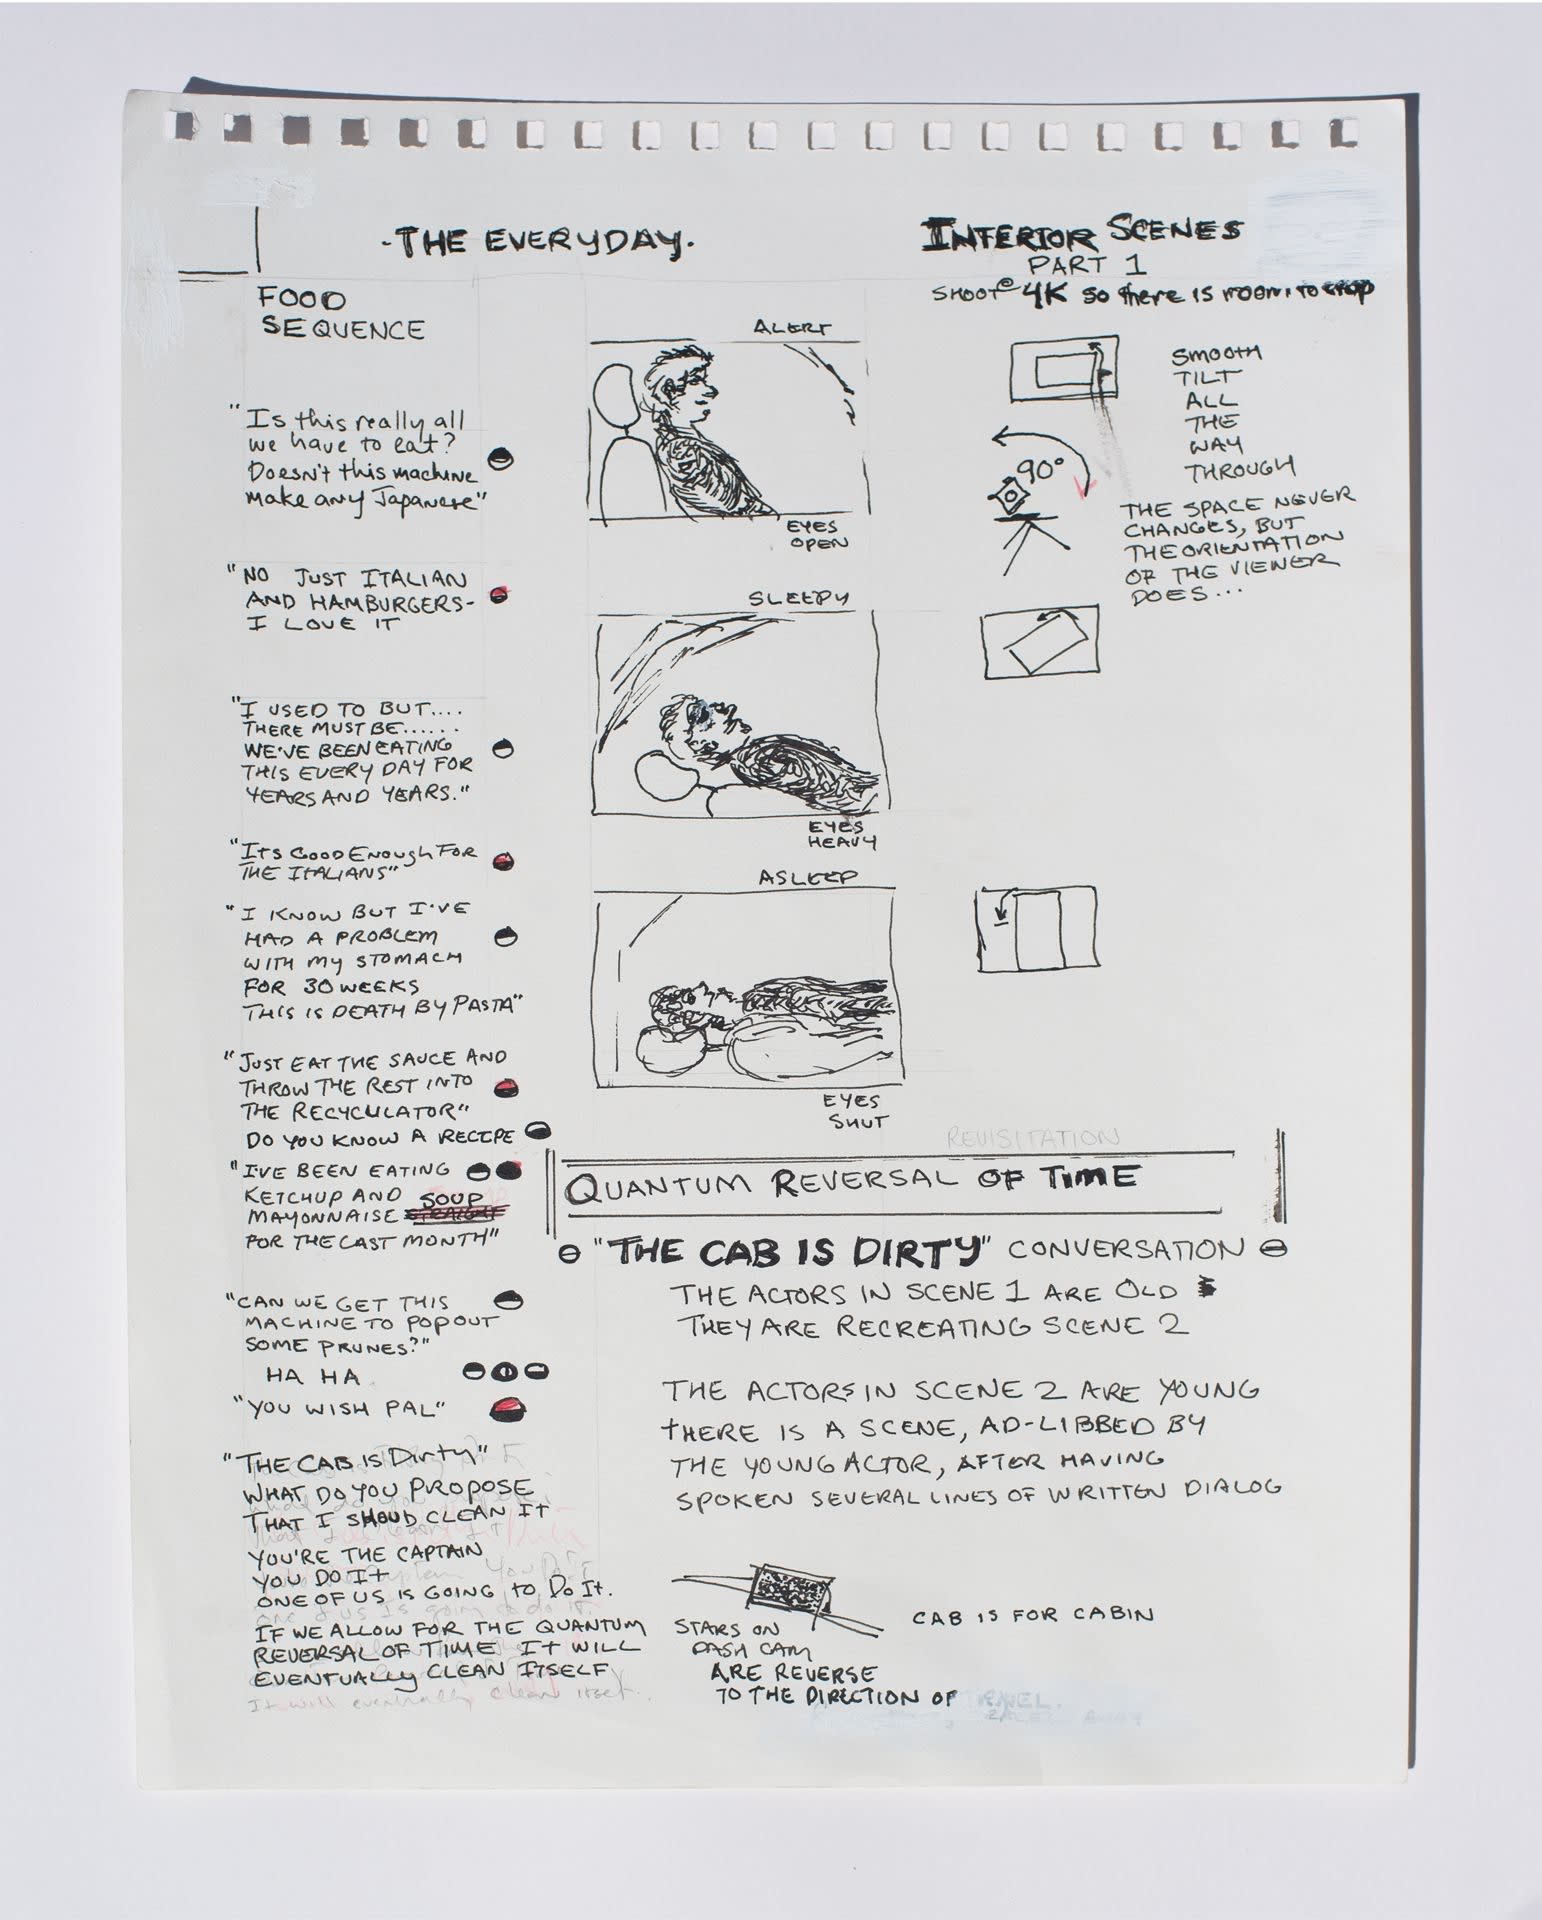 -THE EVERYDAY-
INTERIOR SCENES
PART 1
SHOOT @ 4K so there is room to crop
FOOD
SEQUENCE
"Is this really all
we have to eat?
Doesn't this machine
make any Japanese"
"NO JUST ITALIAN
AND HAMBURGERS-
I LOVE IT
"I USED TO BUT....
THERE MUST BE......
WE'VE BEEN EATING
THIS EVERY DAY FOR
YEARS AND YEARS."
"ITS GOOD ENOUGH FOR
THE ITALIANS"
"I KNOW BUT I'VE
HAD A PROBLEM
WITH MY STOMACH
FOR 30 WEEKS
THIS IS DEATH BY PASTA"
"JUST EAT THE SAUCE AND
THROW THE REST INTO
THE RECYCULATOR"
DO YOU KNOW A RECIPE
"I'VE BEEN EATING
KETCHUP AND SOUP
MAYONNAISE STRAIGHT
FOR THE LAST MONTH"
"CAN WE GET THIS
MACHINE TO POP OUT
SOME PRUNES?"
HA HA
"YOU WISH PAL"
"THE CAB IS DIRTY"
WHAT DO YOU PROPOSE
THAT I SHOUD CLEAN IT
YOU'RE THE CAPTAIN
YOU DO IT
ONE OF US IS GOING TO DO IT.
IF WE ALLOW FOR THE QUANTUM
REVERSAL OF TIME IT WILL
EVENTUALLY CLEAN ITSELF
It will eventually clean itself.
ALERT
EYES
OPEN
SLEEPY
EYES
HEAVY
ASLEEP
EYES
SHUT
SMOOTH
TILT
ALL
THE
WAY
THROUGH
90°
THE SPACE NEVER
CHANGES, BUT
THE ORIENTATION
OF THE VIEWER
DOES...
REVISITATION
QUANTUM REVERSAL OF TIME
"THE CAB IS DIRTY" CONVERSATION
THE ACTORS IN SCENE 1 ARE OLD
THEY ARE RECREATING SCENE 2
THE ACTORS IN SCENE 2 ARE YOUNG
THERE IS A SCENE, AD-LIBBED BY
THE YOUNG ACTOR, AFTER HAVING
SPOKEN SEVERAL LINES OF WRITTEN DIALOG
STARS ON
DASH CAM
ARE REVERSE
TO THE DIRECTION OF TRAVEL.
CAB IS FOR CABIN